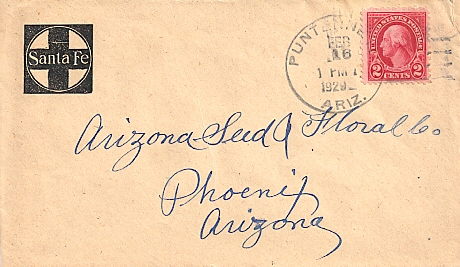 Santa Fe
FEB
16
1 PM
1929
ARIZ.
UNITED STATES POSTAGE
2 CENTS 2
Arizona Seed & Floral Co
Phoenix
Arizona